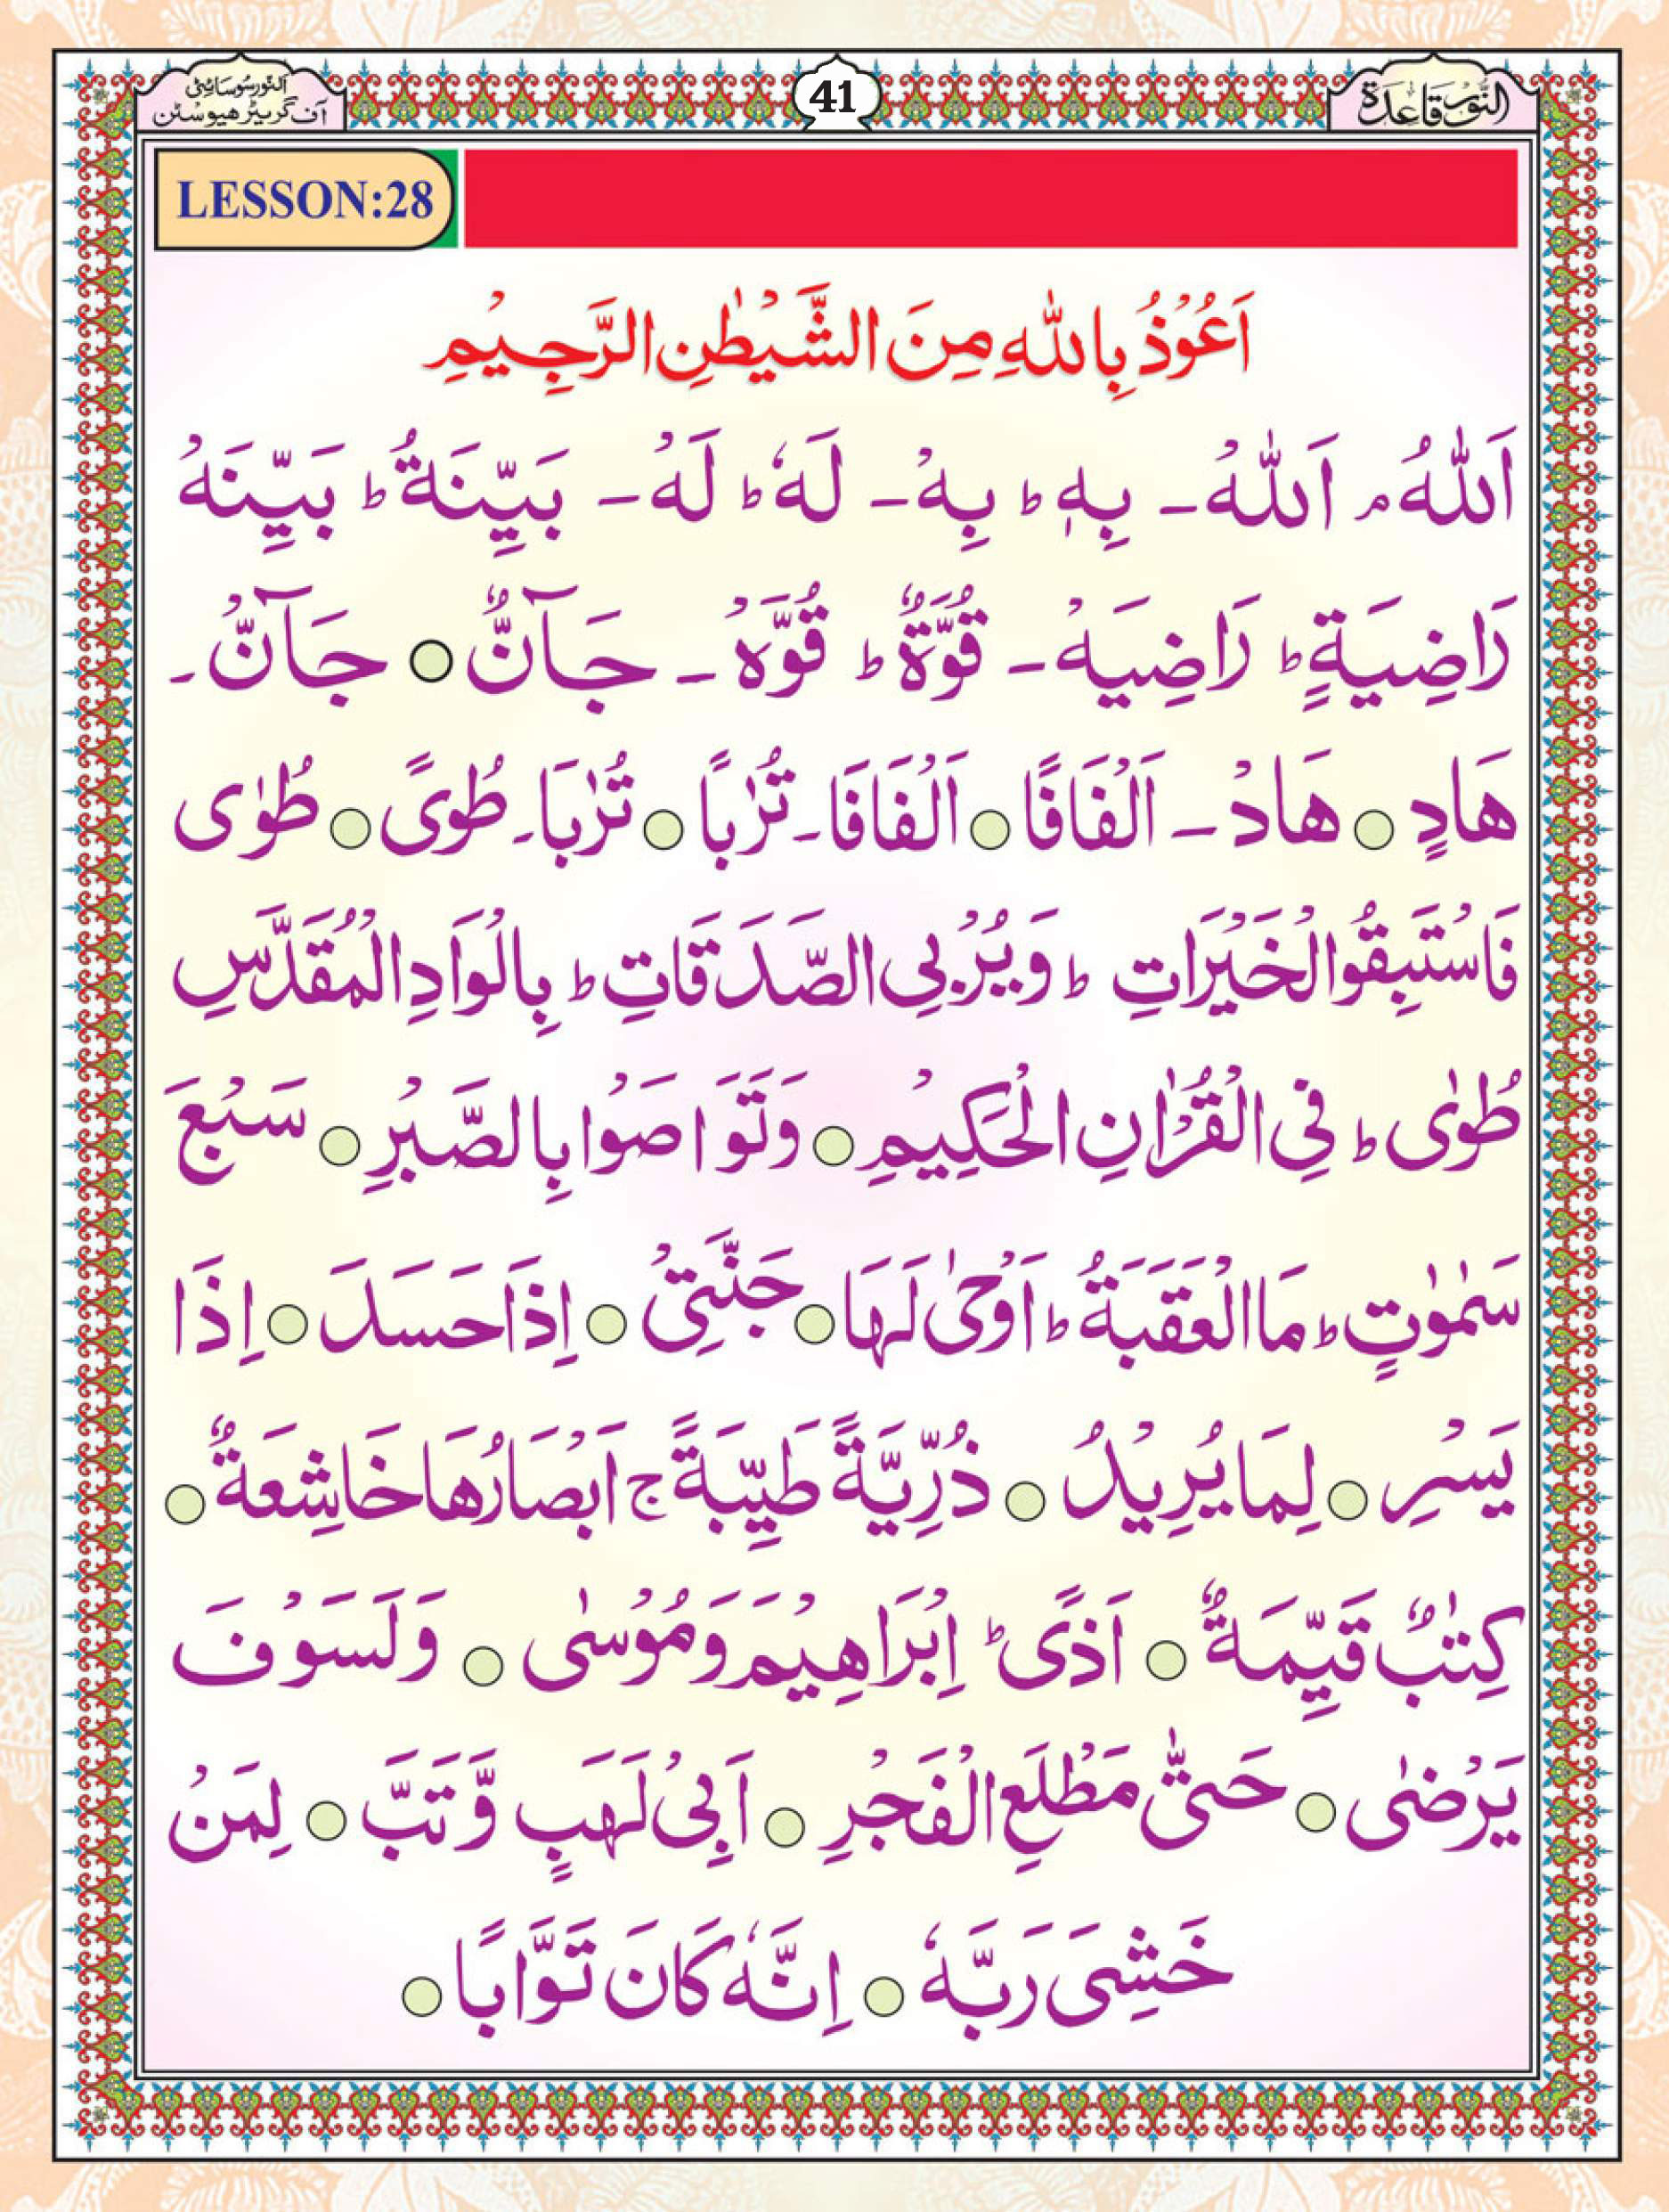 النُّوْر قَاعِدَة
41
اَلنُّوْر سُوسَائِٹِی
آف گریٹر ھیوسٹن
LESSON:28
اَعُوْذُ بِاللّٰهِ مِنَ الشَّيْطٰنِ الرَّجِيْمِ
اَللّٰهُ مـ اَللّٰهْ ـ بِهٖ ط بِهْ ـ لَهٗ ط لَهْ ـ بَيِّنَةُ ط بَيِّنَهْ
رَاضِيَةٍ ط رَاضِيَهْ ـ قُوَّةٌ ط قُوَّهْ ـ جَآنٌّ ○ جَآنّْ ـ
هَادٍ ○ هَادْ ـ اَلْفَافًا ○ اَلْفَافَا ـ تُرٰبًا ○ تُرٰبَا ـ طُوًى ○ طُوٰى
فَاسْتَبِقُوا الْخَيْرَاتِ ط وَيُرْبِى الصَّدَقَاتِ ط بِالْوَادِ الْمُقَدَّسِ
طُوٰى ط فِى الْقُرْاٰنِ الْحَكِيْمِ ○ وَتَوَاصَوْا بِالصَّبْرِ ○ سَبْعَ
سَمٰوٰتٍ ط مَا الْعَقَبَةُ ط اَوْحٰى لَهَا ○ جَنَّتِىْ ○ اِذَا حَسَدَ ○ اِذَا
يَسْرِ ○ لِمَا يُرِيْدُ ○ ذُرِّيَّةً طَيِّبَةً ج اَبْصَارُهَا خَاشِعَةٌ ○
كِتٰبٌ قَيِّمَةٌ ○ اَذًى ط اِبْرَاهِيْمَ وَمُوْسٰى ○ وَلَسَوْفَ
يَرْضٰى ○ حَتّٰى مَطْلَعِ الْفَجْرِ ○ اَبِىْ لَهَبٍ وَّتَبَّ ○ لِمَنْ
خَشِىَ رَبَّهٗ ○ اِنَّهٗ كَانَ تَوَّابًا ○